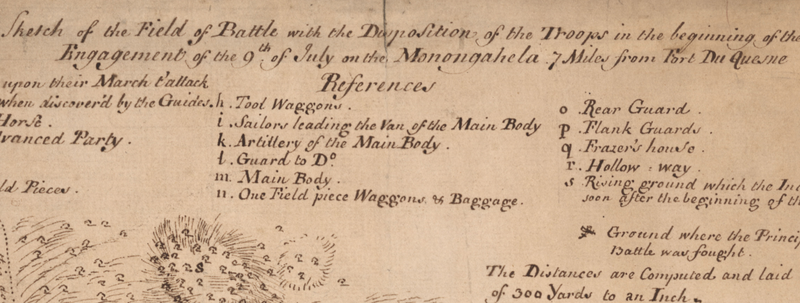 Sketch of the Field of Battle with the Disposition of the Troops in the beginning of the
Engagement of the 9th of July on the Monongahela 7 Miles from Fort Du Quesne
upon their March t'attack
when discover'd by the Guides.
Horse.
dvanced Party.
ld Pieces.
References
h. Tool Waggons.
i. Sailors leading the Van of the Main Body
k. Artillery of the Main Body.
l. Guard to Do.
m. Main Body.
n. One Field piece Waggons & Baggage.
o Rear Guard.
p. Flank Guards.
q. Frazer's house.
r. Hollow: way.
s Rising ground which the Ind
soon after the beginning of th
Ground where the Princip
Battle was fought.
The Distances are Computed and laid
of 300 Yards to an Inch.
s